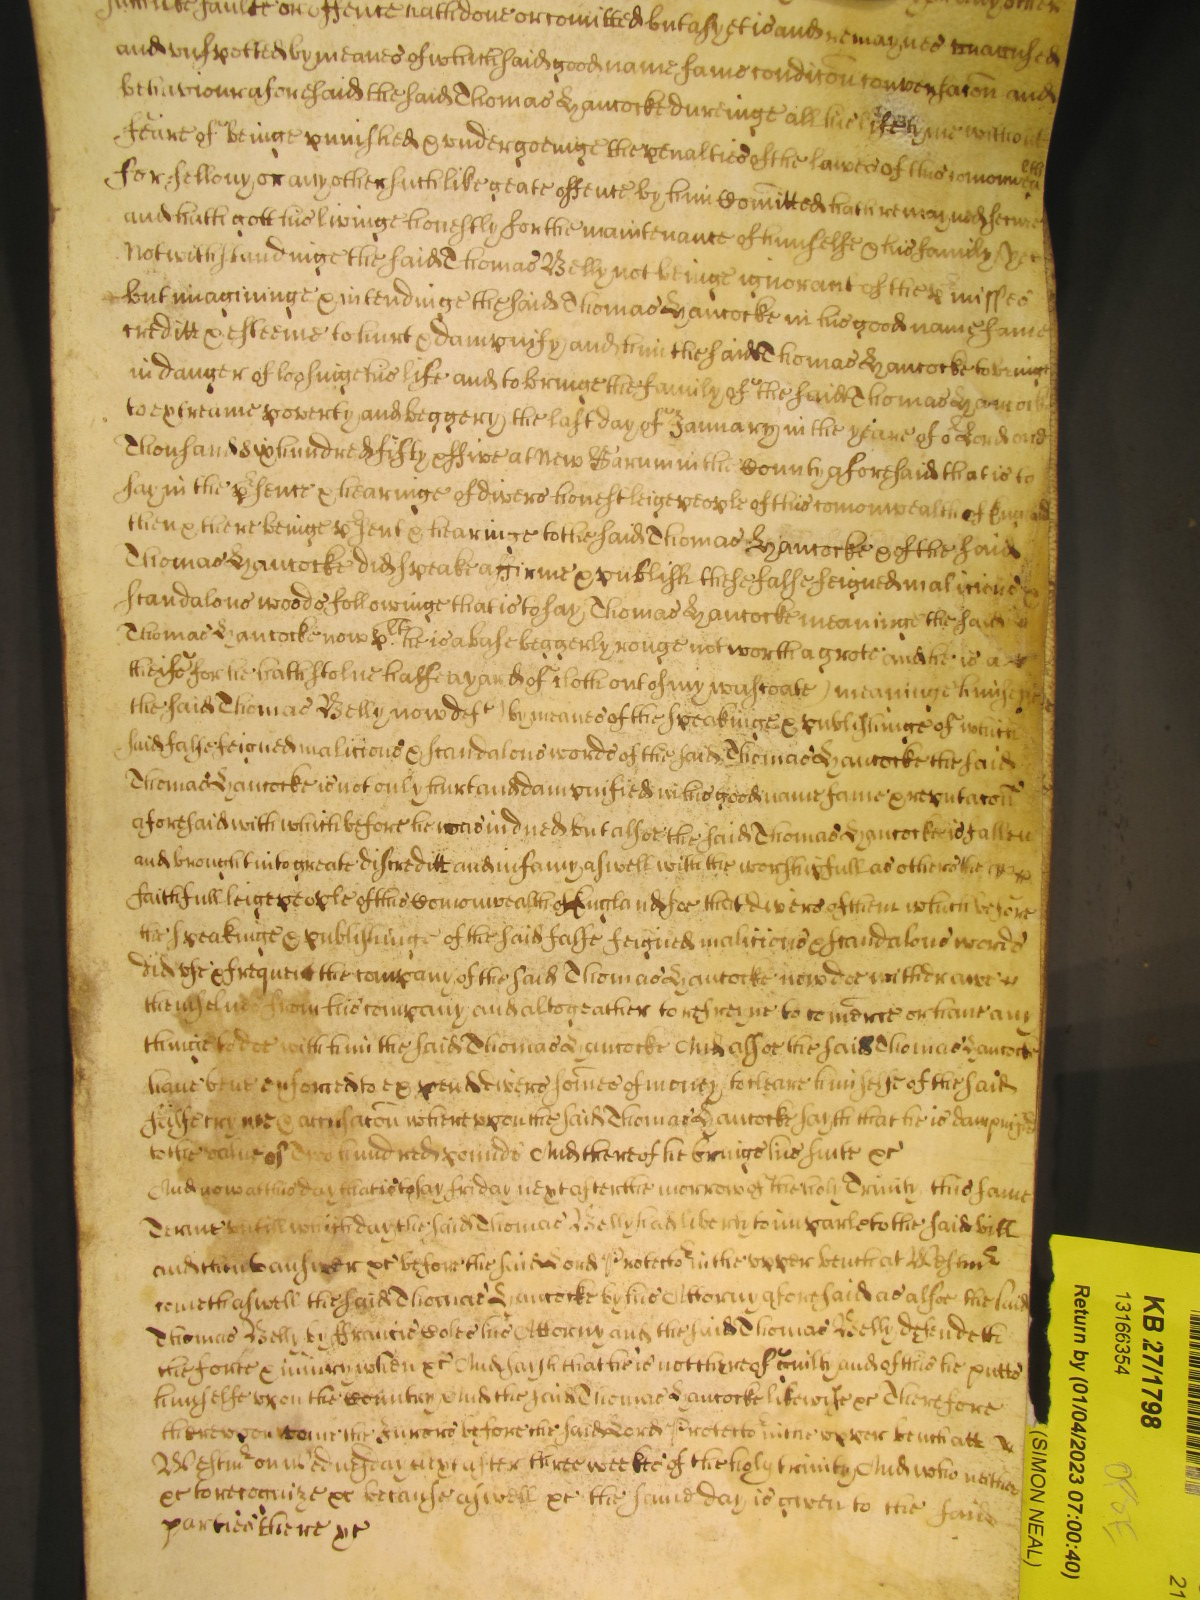 such like faulte or offence hath done or comitted but as yet is and remaynes untouched
and unspotted by meanes of which said good name fame condicōn conversacōn and
behaviour aforesaid the said Thomas Hancocke dureinge all his life tyme without
feare of beinge punished & undergoeinge the penalties of the lawes of this comonwealth
for fellony or any other such like greate offence by him Comitted hath remayned secure
and hath gott his livinge honestly for the maintenance of himselfe & his family yet
Notwithstandinge the said Thomas Belly not beinge ignorant of the pmisses
but imagininge & intendinge the said Thomas Hancocke in his good name fame
creditt & esteeme to hurt & dampnify and him the said Thomas Hancocke to bringe
in danger of loosinge his life and to bringe the family of the said Thomas Hancocke
to extreame poverty and beggery the last day of January in the yeare of oʳ Lord one
Thousand six hundred fifty & ffive at New Sarum in the County aforesaid that is to
say in the psence & hearinge of divers honest leige people of this comonwealth of England
then & there beinge psent & hearinge to the said Thomas Hancocke & of the said
Thomas Hancocke did speake affirme & publish these false feigned malicious &
scandalous woods followinge that is to say Thomas Hancocke meaninge the said
Thomas Hancocke now plt he is a base beggerly rouge not worth a grote and he is a
theife for he hath stolne halfe a yard of cloth out of my wascoate) meaninge himselfe
the said Thomas Belly now deft) by meanes of the speakinge & publishinge of which
said false feigned malicious & scandalous words of the said Thomas Hancocke the said
Thomas Hancocke is not only hurt and dampnified in his good name fame & reputacōn
aforesaid with which before he was indued but alsoe the said Thomas Hancocke is fallen
and brought into greate discreditt and infamy aswell with the worshipfull as others the
faithfull leige people of this Comonwealth of England soe that divers of them which before
the speakinge & publishinge of the said false feigned malicious & scandalous words
did use & frequent the company of the said Thomas Hancocke now doe withdrawe
themselves from his company and altogeather to refreyne to comerce or have any
thinge to doe with him the said Thomas Hancocke And alsoe the said Thomas Hancocke
have bene enforced to expend divers somes of money to cleare himselfe of the said
false cryme & accusacōn whereupon the said Thomas Hancocke sayth that he is dampnifyed
to the value of Two hundred pounds And thereof he bringes his suite &c
And now at this day that is to say friday next after the morrow of the holy Trinity this same
Terme untill which day the said Thomas Belly had liberty to imparle to the said bill
and then to answer &c before the said Lord Protectoʳ in the upper bench at Westmʳ
cometh aswell the said Thomas Hancocke by his Attorny aforesaid as alsoe the said
Thomas Belly by ffrancis Coles his Attorny and the said Thomas Belly defendeth
the force & iniury when &c And sayth that he is not thereof Guilty and of this he putts
himselfe upon the Country And the said Thomas Hancocke likewise &c Therefore
thereupon come the Jurors before the said Lord Protectoʳ in the upper bench att
Westmʳ on wednesday next after three weekes of the holy trinity And who neither
&c to recognize &c because aswell &c the same day is given to the said
parties there &c
KB 27/1798
13166354
Return by (01/04/2023 07:00:40)
(SIMON NEAL)
21